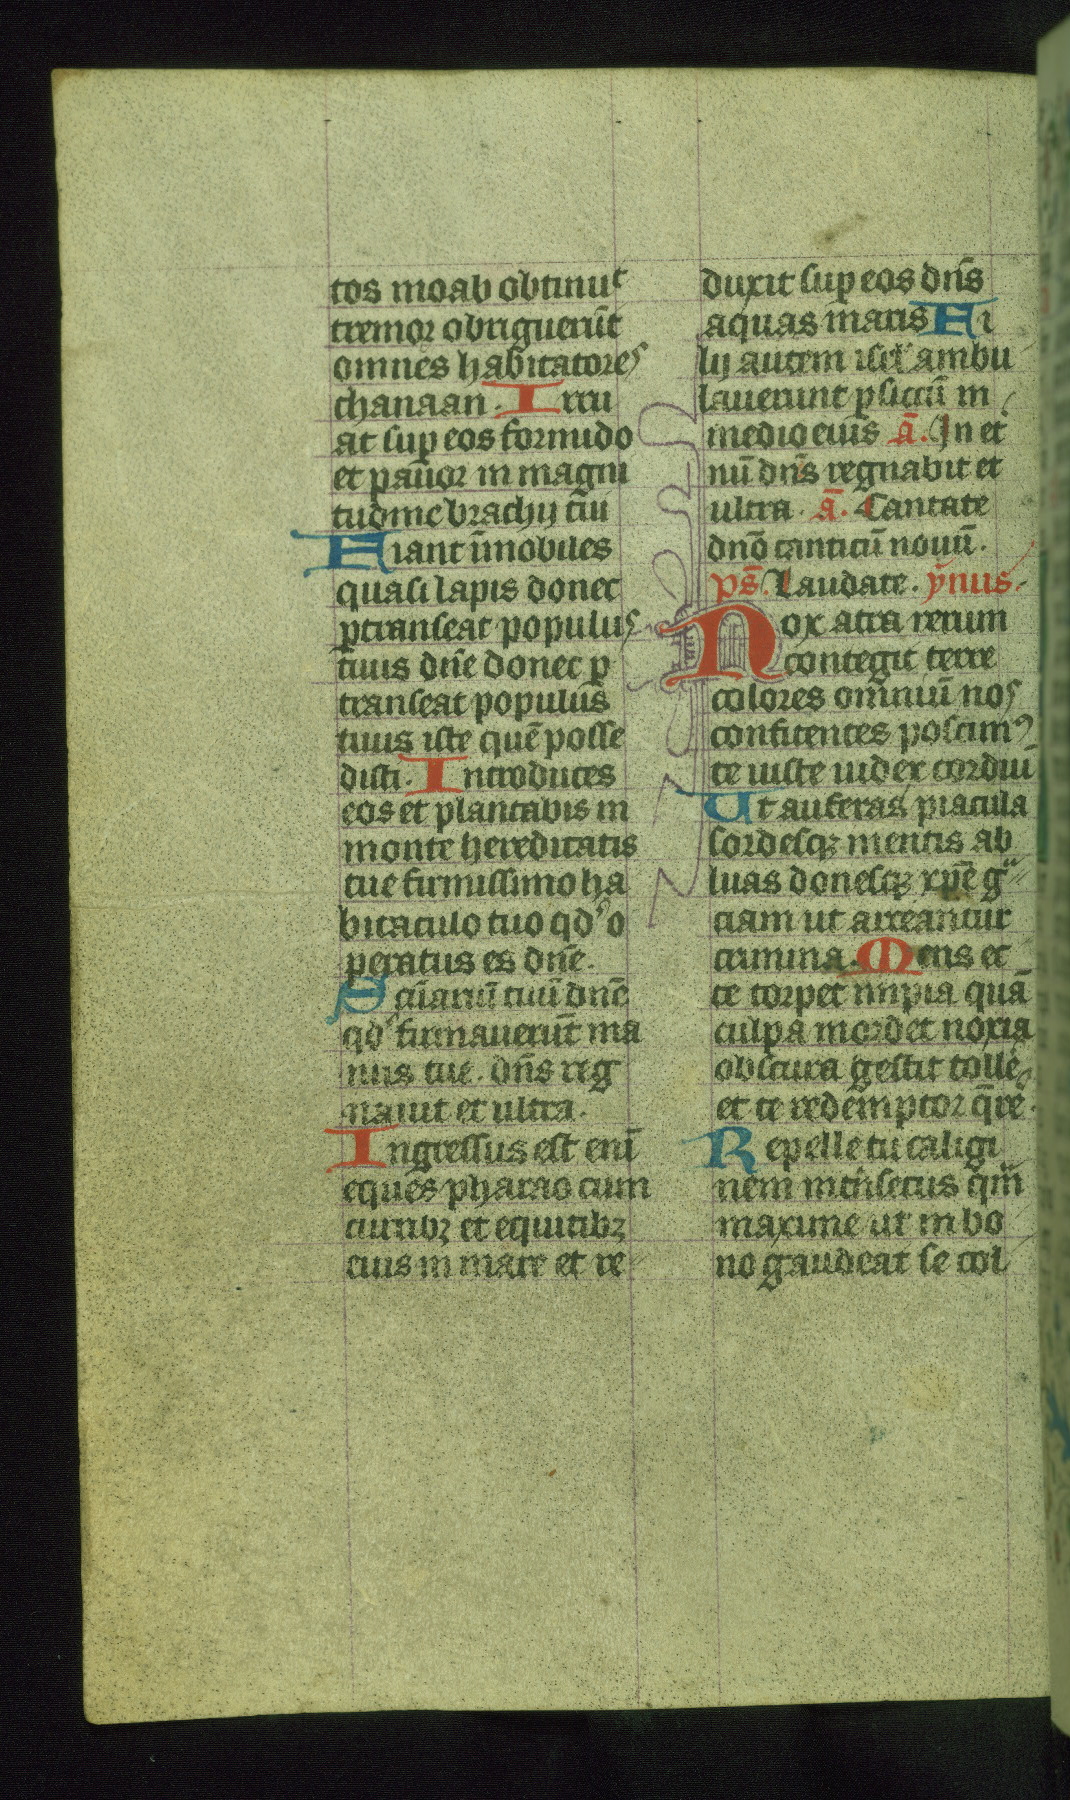 tos moab obtinuᵗ
tremor obriguerūt
omnes habitatores
chanaan. Irru
at sup eos formido
et pauor in magni
tudine brachij tui
Fiant īmobiles
quasi lapis donec
ptranseat populus
tuus dn̄e donec p
transeat populus
tuus iste quē posse
disti. Introduces
eos et plantabis in
monte hereditatis
tue firmissimo ha
bitaculo tuo qd' o
peratus es dn̄e.
Sc̄uariū tuū dn̄e
qd' firmauerūt ma
nus tue. dn̄s reg
nauit et ultra.
Ingressus est enī
eques pharao cum
curribꝫ et equitibꝫ
eius in mare et re
duxit sup eos dn̄s
aquas maris Fi
lij autem isrl' ambu
lauerunt p siccū in
medio eius a̅. In et
nū dn̄s regnabit et
ultra. a̅. Cantate
dnō canticū nouū.
ps̄. Laudate. ymnus.
Nox atra rerum
contegit terre
colores omniū nos
confitentes poscimꝰ
te iuste iudex cordiū
Ut auferas piacula
sordesqꝫ mentis ab
luas donesqꝫ xp̄e gᵃ
ciam ut arceantur
crimina. Mens ec
ce torpet impia quā
culpa mordet noxia
obscura gestit tolle
et te redemptor q̄re.
Repelle tu caligi
nem intrīsecus qm̄
maxime ut in bo
no gaudeat se col